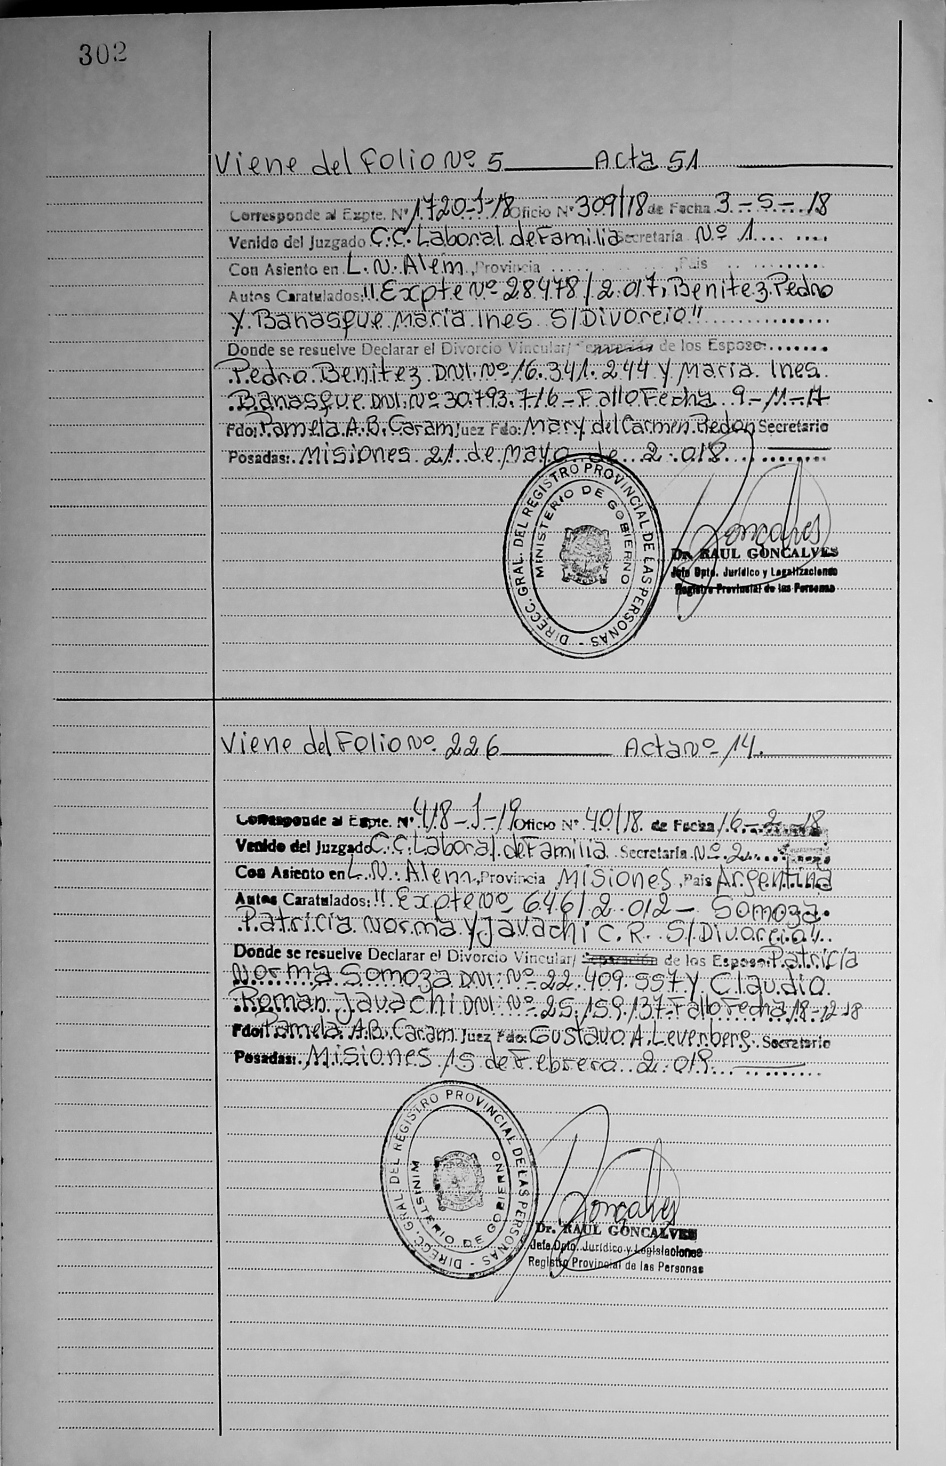 302
Viene del Folio Nº 5 Acta 51
Corresponde al Expte. Nº 1720-J-18 Oficio Nº 309/18 de Fecha 3.-5-.18
Venido del Juzgado C.C. Laboral de Familia Secretaría Nº 1
Con Asiento en L.N. Alem, Provincia , País
Autos Caratulados: "Expte Nº 28478/2.017, Benitez Pedro
y Banasque Maria Ines S/Divorcio"
Donde se resuelve Declarar el Divorcio Vincular/ de los Esposo:
Pedro Benitez DNI. Nº 16.341.244 y Maria Ines
Banasque DNI. Nº 30.793.716 - Fallo Fecha 9-11-17
Fdo: Pamela A.B. Caram Juez Fdo: Mary del Carmen Piedon Secretario
Posadas: Misiones 21 de Mayo de 2.018
DIRECC. GRAL. DEL REGISTRO PROVINCIAL DE LAS PERSONAS -
MINISTERIO DE GOBIERNO
Dr. RAUL GONCALVES
Jefe Dpto. Jurídico y Legalizaciones
Registro Provincial de las Personas
Viene del Folio Nº 226 Acta Nº 14.
Corresponde al Expte. Nº 418-J-19 Oficio Nº 40/18 de Fecha 16-2-18
Venido del Juzgado C.C. Laboral de Familia Secretaría Nº 2
Con Asiento en L.N. Alem, Provincia Misiones, País Argentina
Autos Caratulados: "Expte Nº 646/2.012 - Somoza
Patricia Norma y Javachi C. R. S/Divorcio"
Donde se resuelve Declarar el Divorcio Vincular/ Separación de los Esposo: Patricia
Norma Somoza DNI. Nº 22.409.557 y Claudio
Roman Javachi DNI. Nº 25.159.137 Fallo Fecha 18-12-18
Fdo: Pamela A.B. Caram Juez Fdo: Gustavo A. Levenberg Secretario
Posadas: Misiones 15 de Febrero 2.019
DIRECC. GRAL. DEL REGISTRO PROVINCIAL DE LAS PERSONAS -
MINISTERIO DE GOBIERNO
Dr. RAUL GONCALVES
Jefe Dpto. Jurídico y Legislaciones
Registro Provincial de las Personas